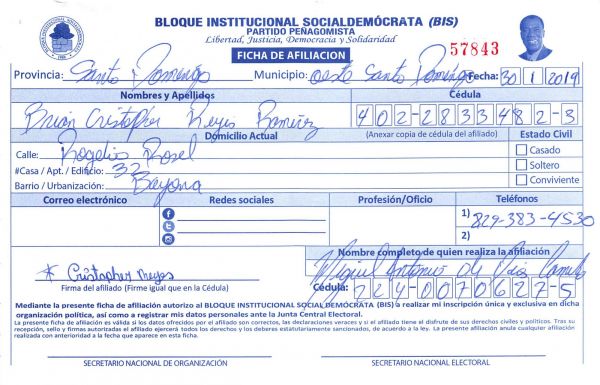 BLOQUE INSTITUCIONAL SOCIALDEMÓCRATA (BIS)
PARTIDO PEÑAGOMISTA
Libertad, Justicia, Democracia y Solidaridad
FICHA DE AFILIACION
57843
Provincia: Santo Domingo Municipio: Oeste Santo Domingo Fecha: 30/1/2019
Nombres y Apellidos Cédula
Brian Cristopher Reyes Ramirez 402-2833482-3
Domicilio Actual (Anexar copia de cédula del afiliado) Estado Civil
Calle: Rogelio Rosel Casado
#Casa / Apt. / Edificio: 32 Soltero
Barrio / Urbanización: Bayona Conviviente
Correo electrónico Redes sociales Profesión/Oficio Teléfonos
1) 829-383-4530
2)
Nombre completo de quien realiza la afiliación
Cristopher Reyes Miguel Antonio de
Firma del afiliado (Firme igual que en la Cédula) Cédula: 224-0070627-5
Mediante la presente ficha de afiliación autorizo al BLOQUE INSTITUCIONAL SOCIAL DEMÓCRATA (BIS) a realizar mi inscripción única y exclusiva en dicha
organización política, así como a registrar mis datos personales ante la Junta Central Electoral.
La presente ficha de afiliación es válida si los datos ofrecidos por el afiliado son correctos, las declaraciones veraces y si el afiliado tiene el disfrute de sus derechos civiles y políticos. Tras su
recepción, sello y firmas autorizadas el afiliado ejercerá todos los derechos y los deberes estatutariamente sancionados, de acuerdo a la ley. La presente afiliación anula cualquier afiliación
realizada con anterioridad a la fecha que aparece en esta ficha.
SECRETARIO NACIONAL DE ORGANIZACIÓN SECRETARIO NACIONAL ELECTORAL